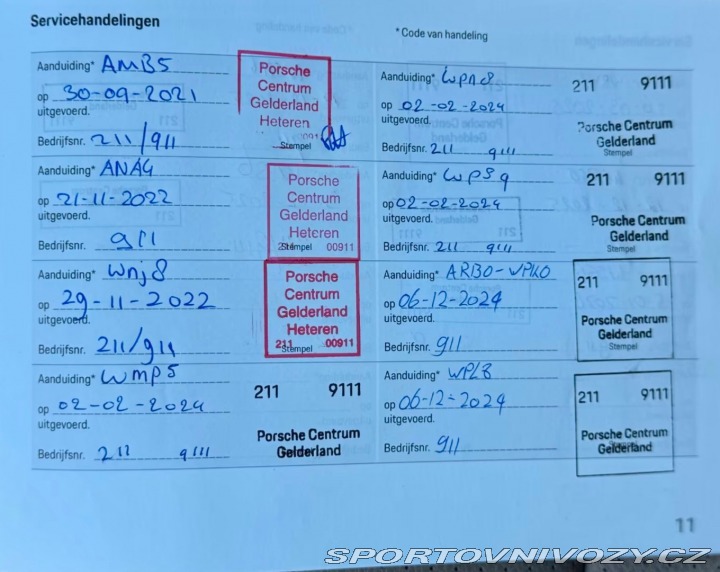 Servicehandelingen
* Code van handeling
Aanduiding* AMB5
op 30-09-2021
uitgevoerd.
Bedrijfsnr. 211/911
Porsche
Centrum
Gelderland
Heteren
Stempel
Aanduiding* ANAG
op 21-11-2022
uitgevoerd.
Bedrijfsnr. 911
Porsche
Centrum
Gelderland
Heteren
Stempel 00911
Aanduiding* Wnj8
op 29-11-2022
uitgevoerd.
Bedrijfsnr. 211/911
Porsche
Centrum
Gelderland
Heteren
211 00911
Stempel
Aanduiding* WMP5
op 02-02-2024
uitgevoerd.
Bedrijfsnr. 211 9111
211 9111
Porsche Centrum
Gelderland
Aanduiding*
op 02-02-2024
uitgevoerd.
Bedrijfsnr. 211 9111
211 9111
Porsche Centrum
Gelderland
Stempel
Aanduiding* WPS9
op 02-02-2024
uitgevoerd.
Bedrijfsnr. 211 9111
211 9111
Porsche Centrum
Gelderland
Stempel
Aanduiding* ARB0-WPK0
op 06-12-2024
uitgevoerd.
Bedrijfsnr. 911
211 9111
Porsche Centrum
Gelderland
Stempel
Aanduiding* WPL8
op 06-12-2024
uitgevoerd.
Bedrijfsnr. 911
211 9111
Porsche Centrum
Gelderland
11
SPORTOVNIVOZY.CZ